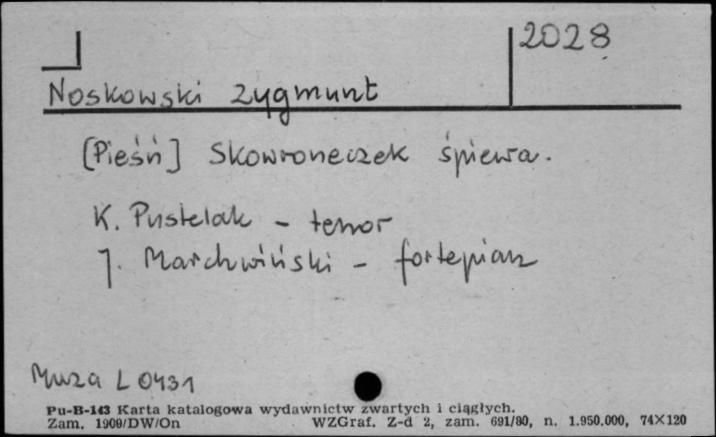 2028
Noskowski Zygmunt
[Pieśń] Skowroneczek śpiewa.
K. Pustelak - tenor
J. Marchwiński - fortepian
Muza L 0431
Pu-B-143 Karta katalogowa wydawnictw zwartych i ciągłych.
Zam. 1909/DW/On WZGraf. Z-d 2, zam. 691/80, n. 1.950.000, 74X120